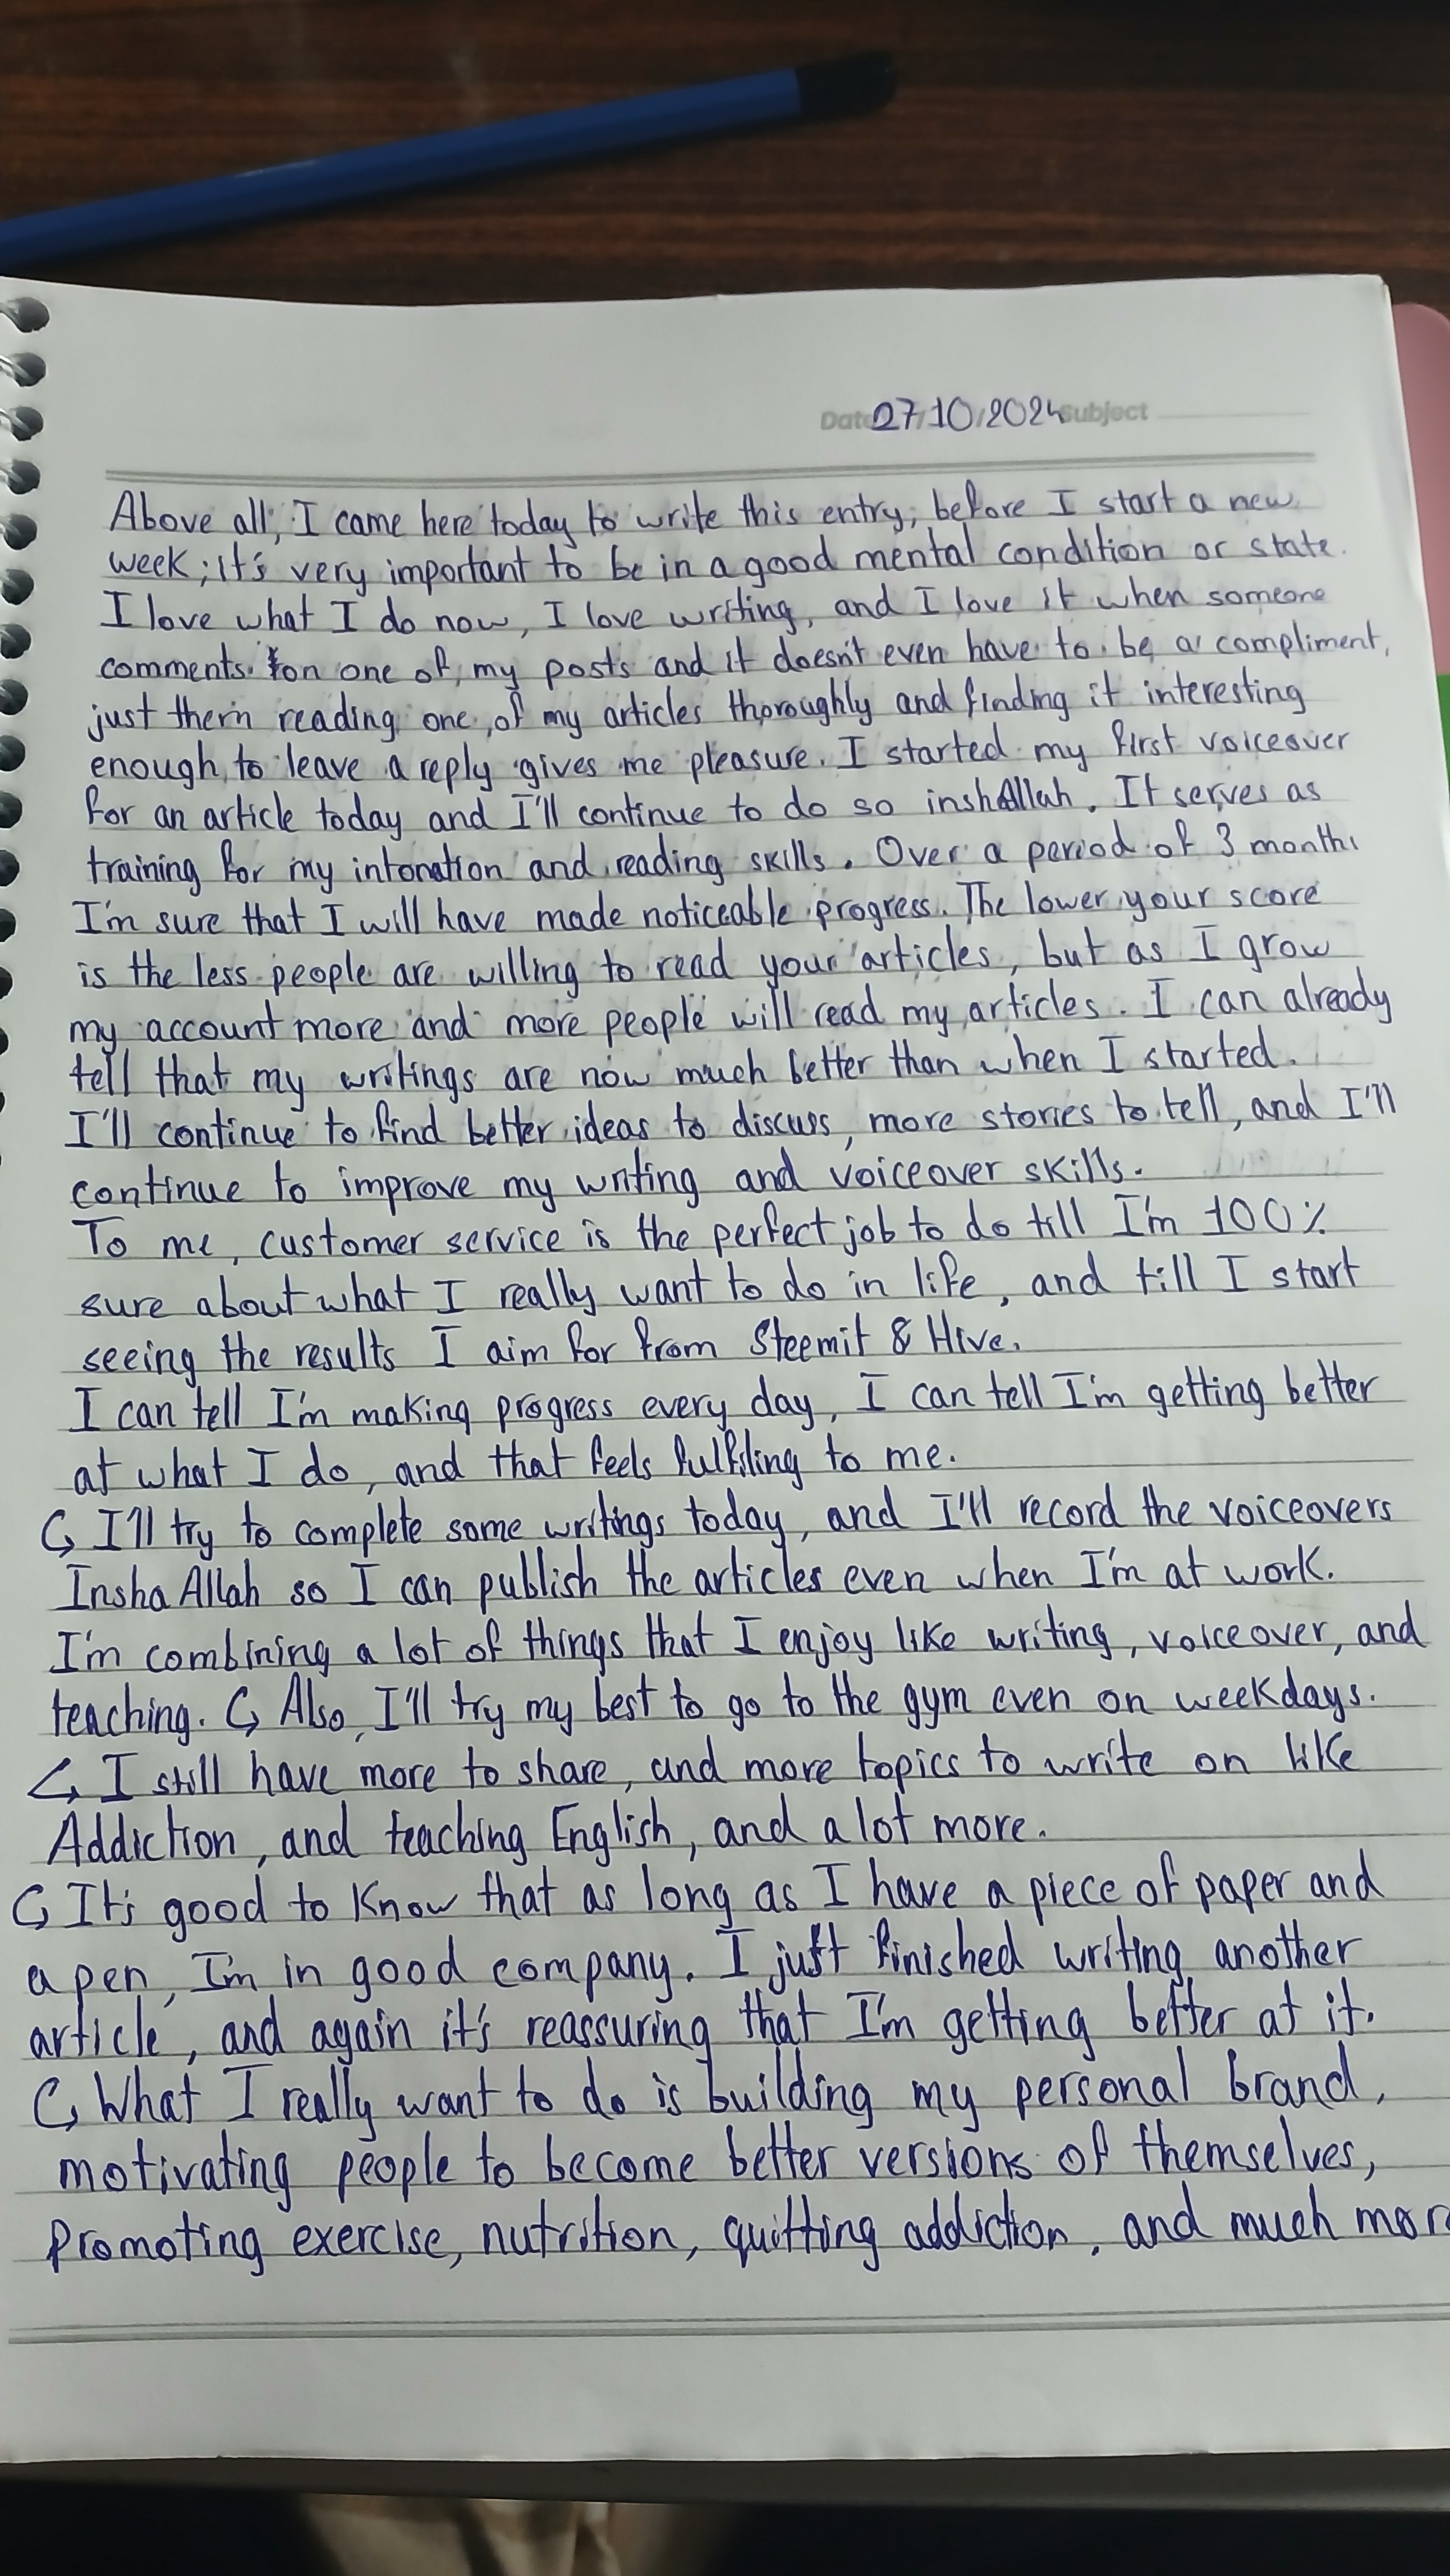 Date 27/10/2024 Subject
Above all, I came here today to write this entry, before I start a new
week; it's very important to be in a good mental condition or state.
I love what I do now, I love writing, and I love it when someone
comments on one of my posts and it doesn't even have to be a compliment,
just them reading one of my articles thoroughly and finding it interesting
enough to leave a reply gives me pleasure. I started my first voiceover
for an article today and I'll continue to do so inshAllah. It serves as
training for my intonation and reading skills. Over a period of 3 months
I'm sure that I will have made noticeable progress. The lower your score
is the less people are willing to read your articles, but as I grow
my account more and more people will read my articles. I can already
tell that my writings are now much better than when I started.
I'll continue to find better ideas to discuss, more stories to tell, and I'll
continue to improve my writing and voiceover skills.
To me, customer service is the perfect job to do till I'm 100%
sure about what I really want to do in life, and till I start
seeing the results I aim for from Steemit & Hive.
I can tell I'm making progress every day, I can tell I'm getting better
at what I do, and that feels fulfiling to me.
↳ I'll try to complete some writings today, and I'll record the voiceovers
Insha Allah so I can publish the articles even when I'm at work.
I'm combining a lot of things that I enjoy like writing, voiceover, and
teaching. ↳ Also, I'll try my best to go to the gym even on weekdays.
↳ I still have more to share, and more topics to write on like
Addiction, and teaching English, and a lot more.
↳ It's good to know that as long as I have a piece of paper and
a pen, I'm in good company. I just finished writing another
article, and again it's reassuring that I'm getting better at it.
↳ What I really want to do is building my personal brand,
motivating people to become better versions of themselves,
promoting exercise, nutrition, quitting addiction, and much mor